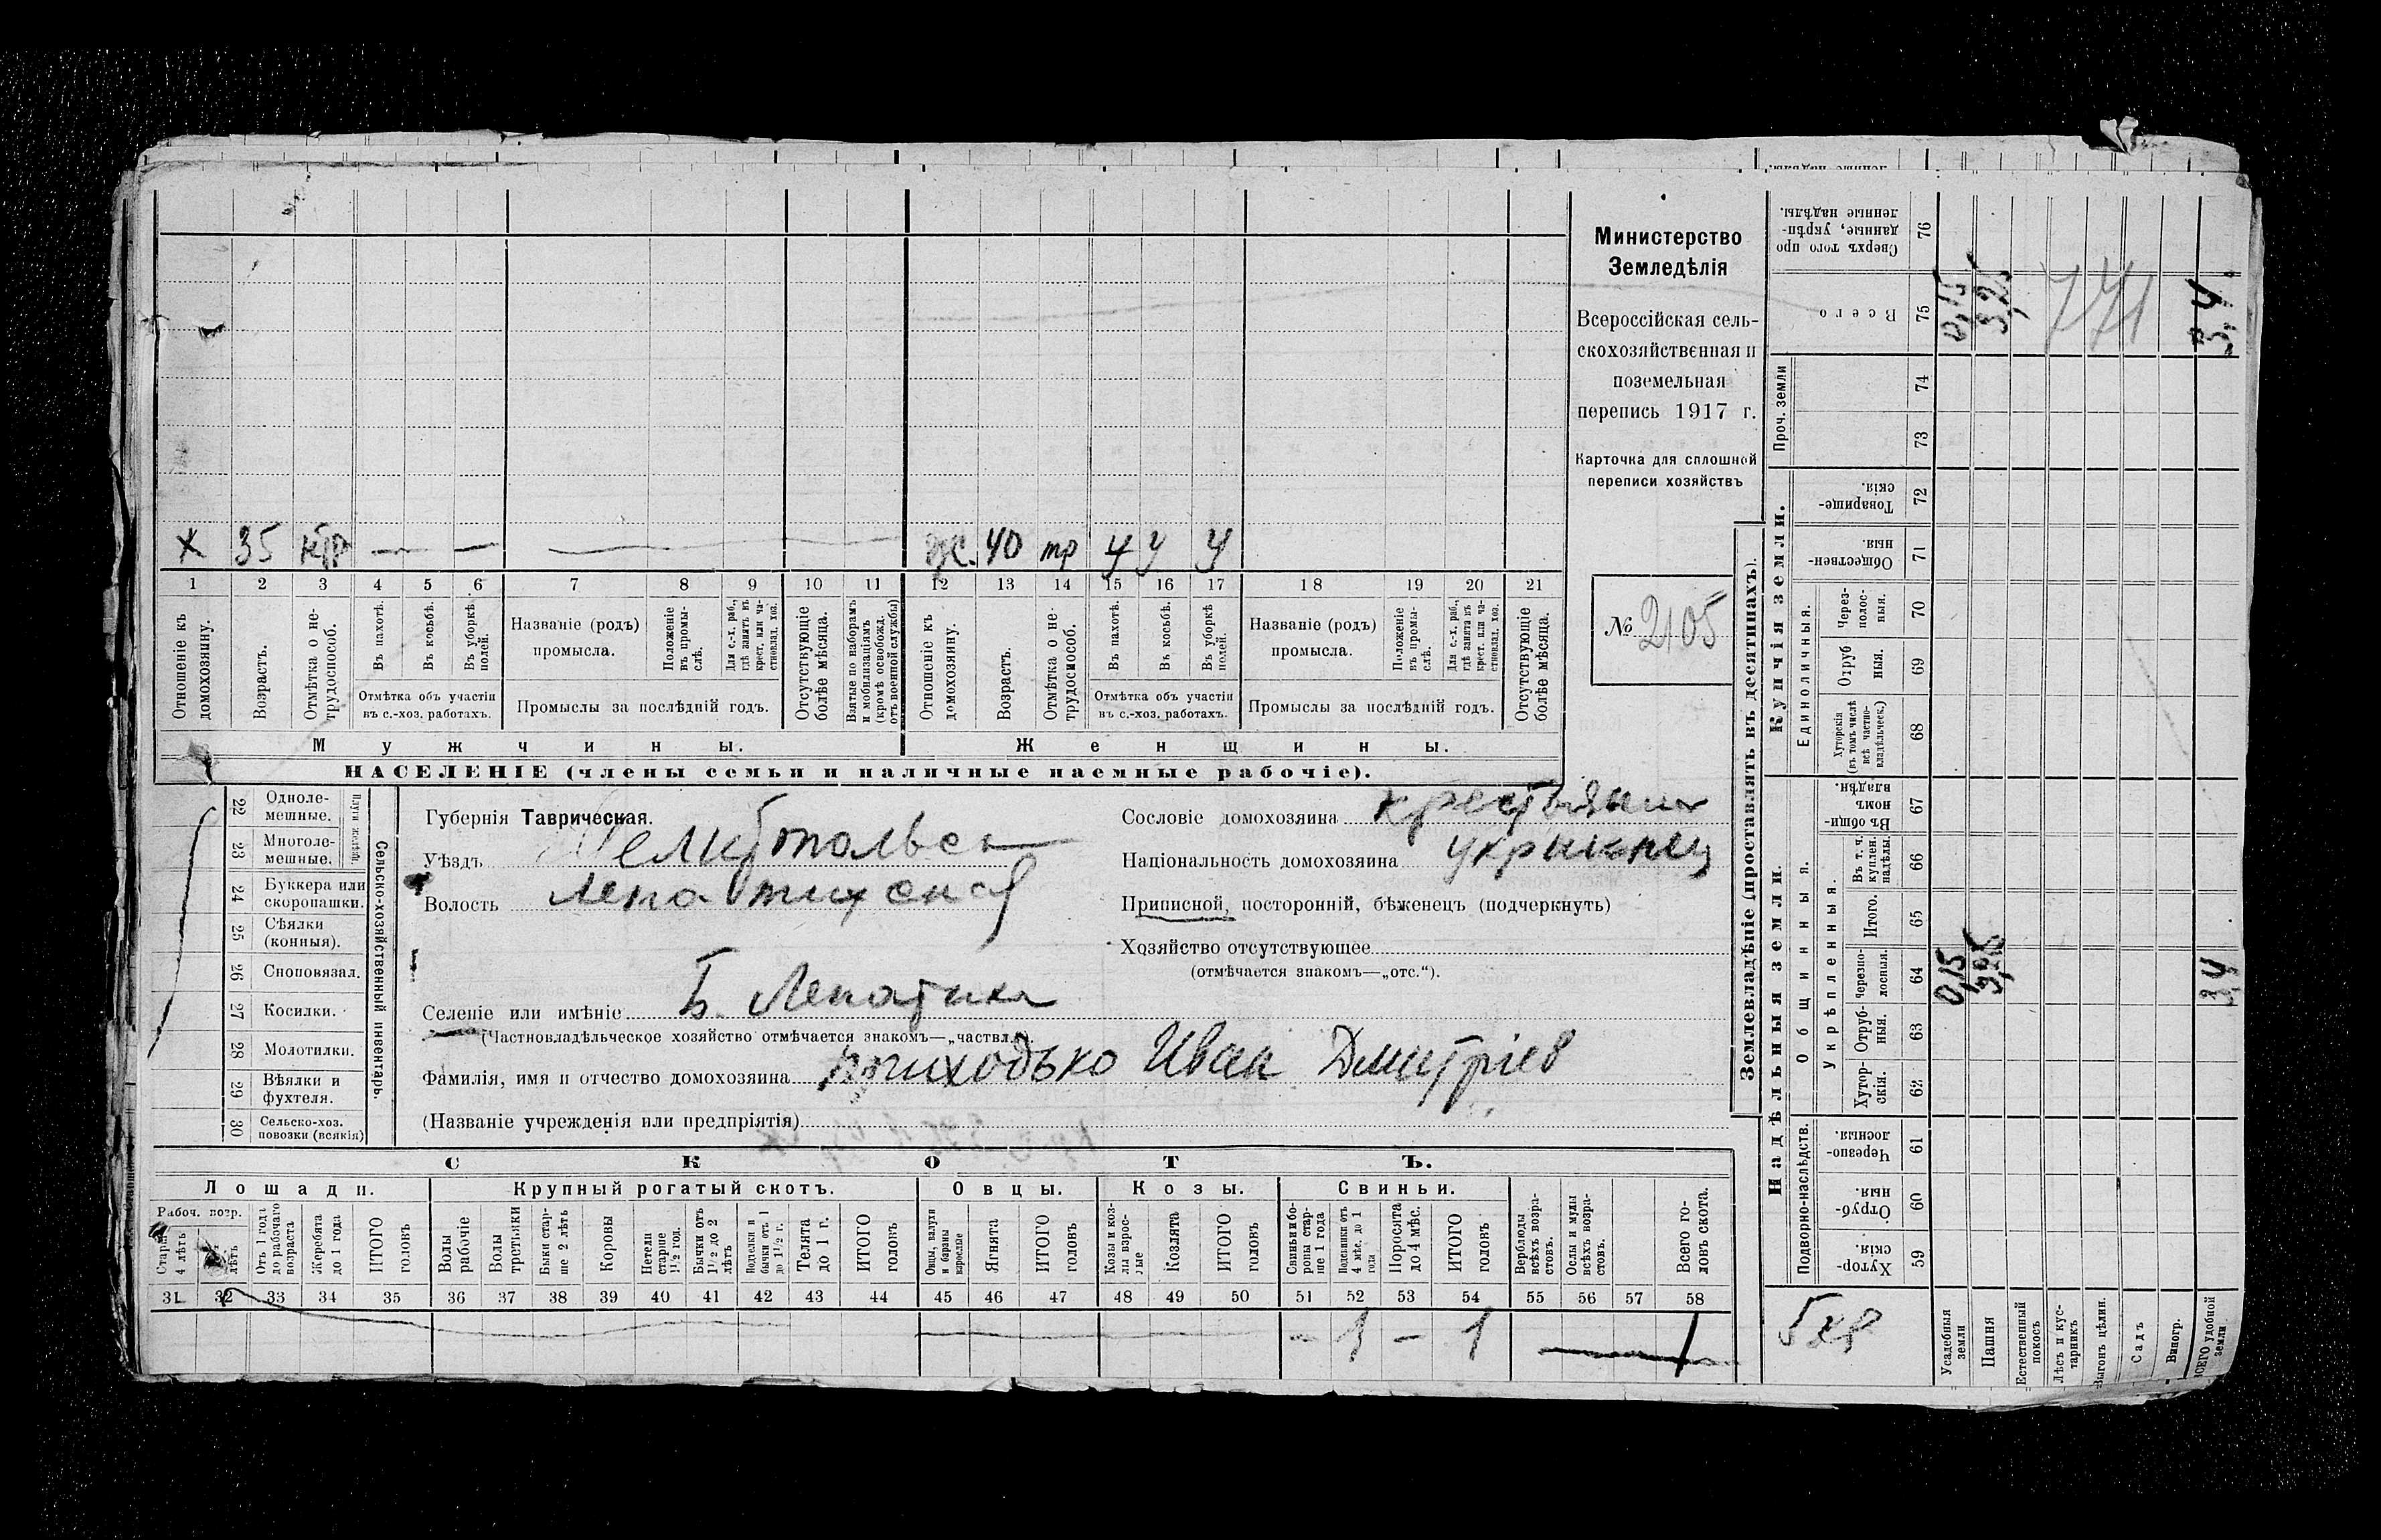 Х 35 н/тр — — — ж. 40 тр У У У
1 2 3 4 5 6 7 8 9 10 11 12 13 14 15 16 17 18 19 20 21
Отношеніе къ домохозяину.
Возрастъ.
Отмѣтка о не-трудоспособ.
Въ пахотѣ.
Въ косьбѣ.
Въ уборкѣ полей.
Отмѣтка объ участіи въ с.-хоз. работахъ.
Названіе (родъ) промысла.
Положеніе въ промы-слѣ.
Для с.-х. раб., гдѣ занятъ въ крест. или ча-стновлад. хоз.
Промыслы за послѣдній годъ.
Отсутствующіе болѣе мѣсяца.
Взятые по наборамъ и мобилизаціямъ (кромѣ освобожд. отъ военной службы)
Отношеніе къ домохозяину.
Возрастъ.
Отмѣтка о не-трудоспособ.
Въ пахотѣ.
Въ косьбѣ.
Въ уборкѣ полей.
Отмѣтка объ участіи въ с.-хоз. работахъ.
Названіе (родъ) промысла.
Положеніе въ промы-слѣ.
Для с.-х. раб., гдѣ занята въ крест. или ча-стновлад. хоз.
Промыслы за послѣдній годъ.
Отсутствующіе болѣе мѣсяца.
Мужчины. Женщины.
НАСЕЛЕНІЕ (члены семьи и наличные наемные рабочіе).
Министерство
Земледѣлія
Всероссійская сель-
скохозяйственная и
поземельная
перепись 1917 г.
Карточка для сплошной
переписи хозяйствъ
№ 2105
22 Одноле-мешные.
23 Многоле-мешные.
24 Буккера или скоропашки.
25 Сѣялки (конныя).
26 Сноповязал.
27 Косилки.
28 Молотилки.
29 Вѣялки и фухтеля.
30 Сельско-хоз. повозки (всякія)
Сельско-хозяйственный инвентарь.
Губернія Таврическая.
Уѣздъ Мелитопольск
Волость Лепатихская
Селеніе или имѣніе Б. Лепатиха
(Частновладѣльческое хозяйство отмѣчается знакомъ—„частвл.“)
Фамилія, имя и отчество домохозяина Приходько Иван Дмитріев
(Названіе учрежденія или предпріятія)
Сословіе домохозяина крестьянин
Національность домохозяина украинец
Приписной, посторонній, бѣженецъ (подчеркнуть)
Хозяйство отсутствующее
(отмѣчается знакомъ—„отс.“).
СКОТЪ.
Лошади. Крупный рогатый скотъ. Овцы. Козы. Свиньи.
Рабоч. возр.
Старше 4 лѣтъ
лѣтъ
Отъ 1 года до рабочаго возраста
Жеребята до 1 года
ИТОГО головъ
Волы рабочіе
Волы третьяки
Быки стар-ше 2 лѣтъ
Коровы
Нетели старше 1½ год.
Бычки отъ 1½ до 2 лѣтъ
Подтелки и бычки отъ 1 до 1½ г.
Телята до 1 г.
ИТОГО головъ
Овцы, валухи и бараны взрослые
Ягнята
ИТОГО головъ
Козы и коз-лы взрос-лые
Козлята
ИТОГО головъ
Свиньи и бо-ровы стар-ше 1 года
Подсвинки отъ 4 мѣс. до 1 года
Поросята до 4 мѣс.
ИТОГО головъ
Верблюды всѣхъ возра-стовъ.
Ослы и мулы всѣхъ возра-стовъ.
Всего го-ловъ скота.
31 32 33 34 35 36 37 38 39 40 41 42 43 44 45 46 47 48 49 50 51 52 53 54 55 56 57 58
– 1 – 1 1
Землевладѣніе (проставлять въ десятинахъ).
Купчія земли.
Надѣльныя земли.
Сверхъ того про данные, укрѣп-ленные надѣлы. 76
Всего 75 0,15 3,25 3,4
771
Проч. земли 74 73
Товарище-скія. 72
Обществен-ныя. 71
Единоличныя.
Через-полос-ныя. 70
Отруб ныя. 69
Хуторскія (въ томъ числѣ всѣ частно-владѣльческ.) 68
Общинныя.
Въ общи-номъ владѣн. 67
Укрѣпленныя.
Въ т. ч. куплен. надѣлы. 66
Итого. 65
Черезпо-лосныя. 64 0,15 3,25 3,4
Отруб-ныя. 63
Хутор-скія. 62
Подворно-наслѣдств.
Черезпо-лосныя. 61
Отруб-ныя. 60
Хутор-скія. 59
Усадебныя земли
Пашня
Естественный покосъ
Лѣсъ и кус-тарникъ
Выгонъ цѣлин.
Садъ
Виногр.
ВСЕГО удобной земли